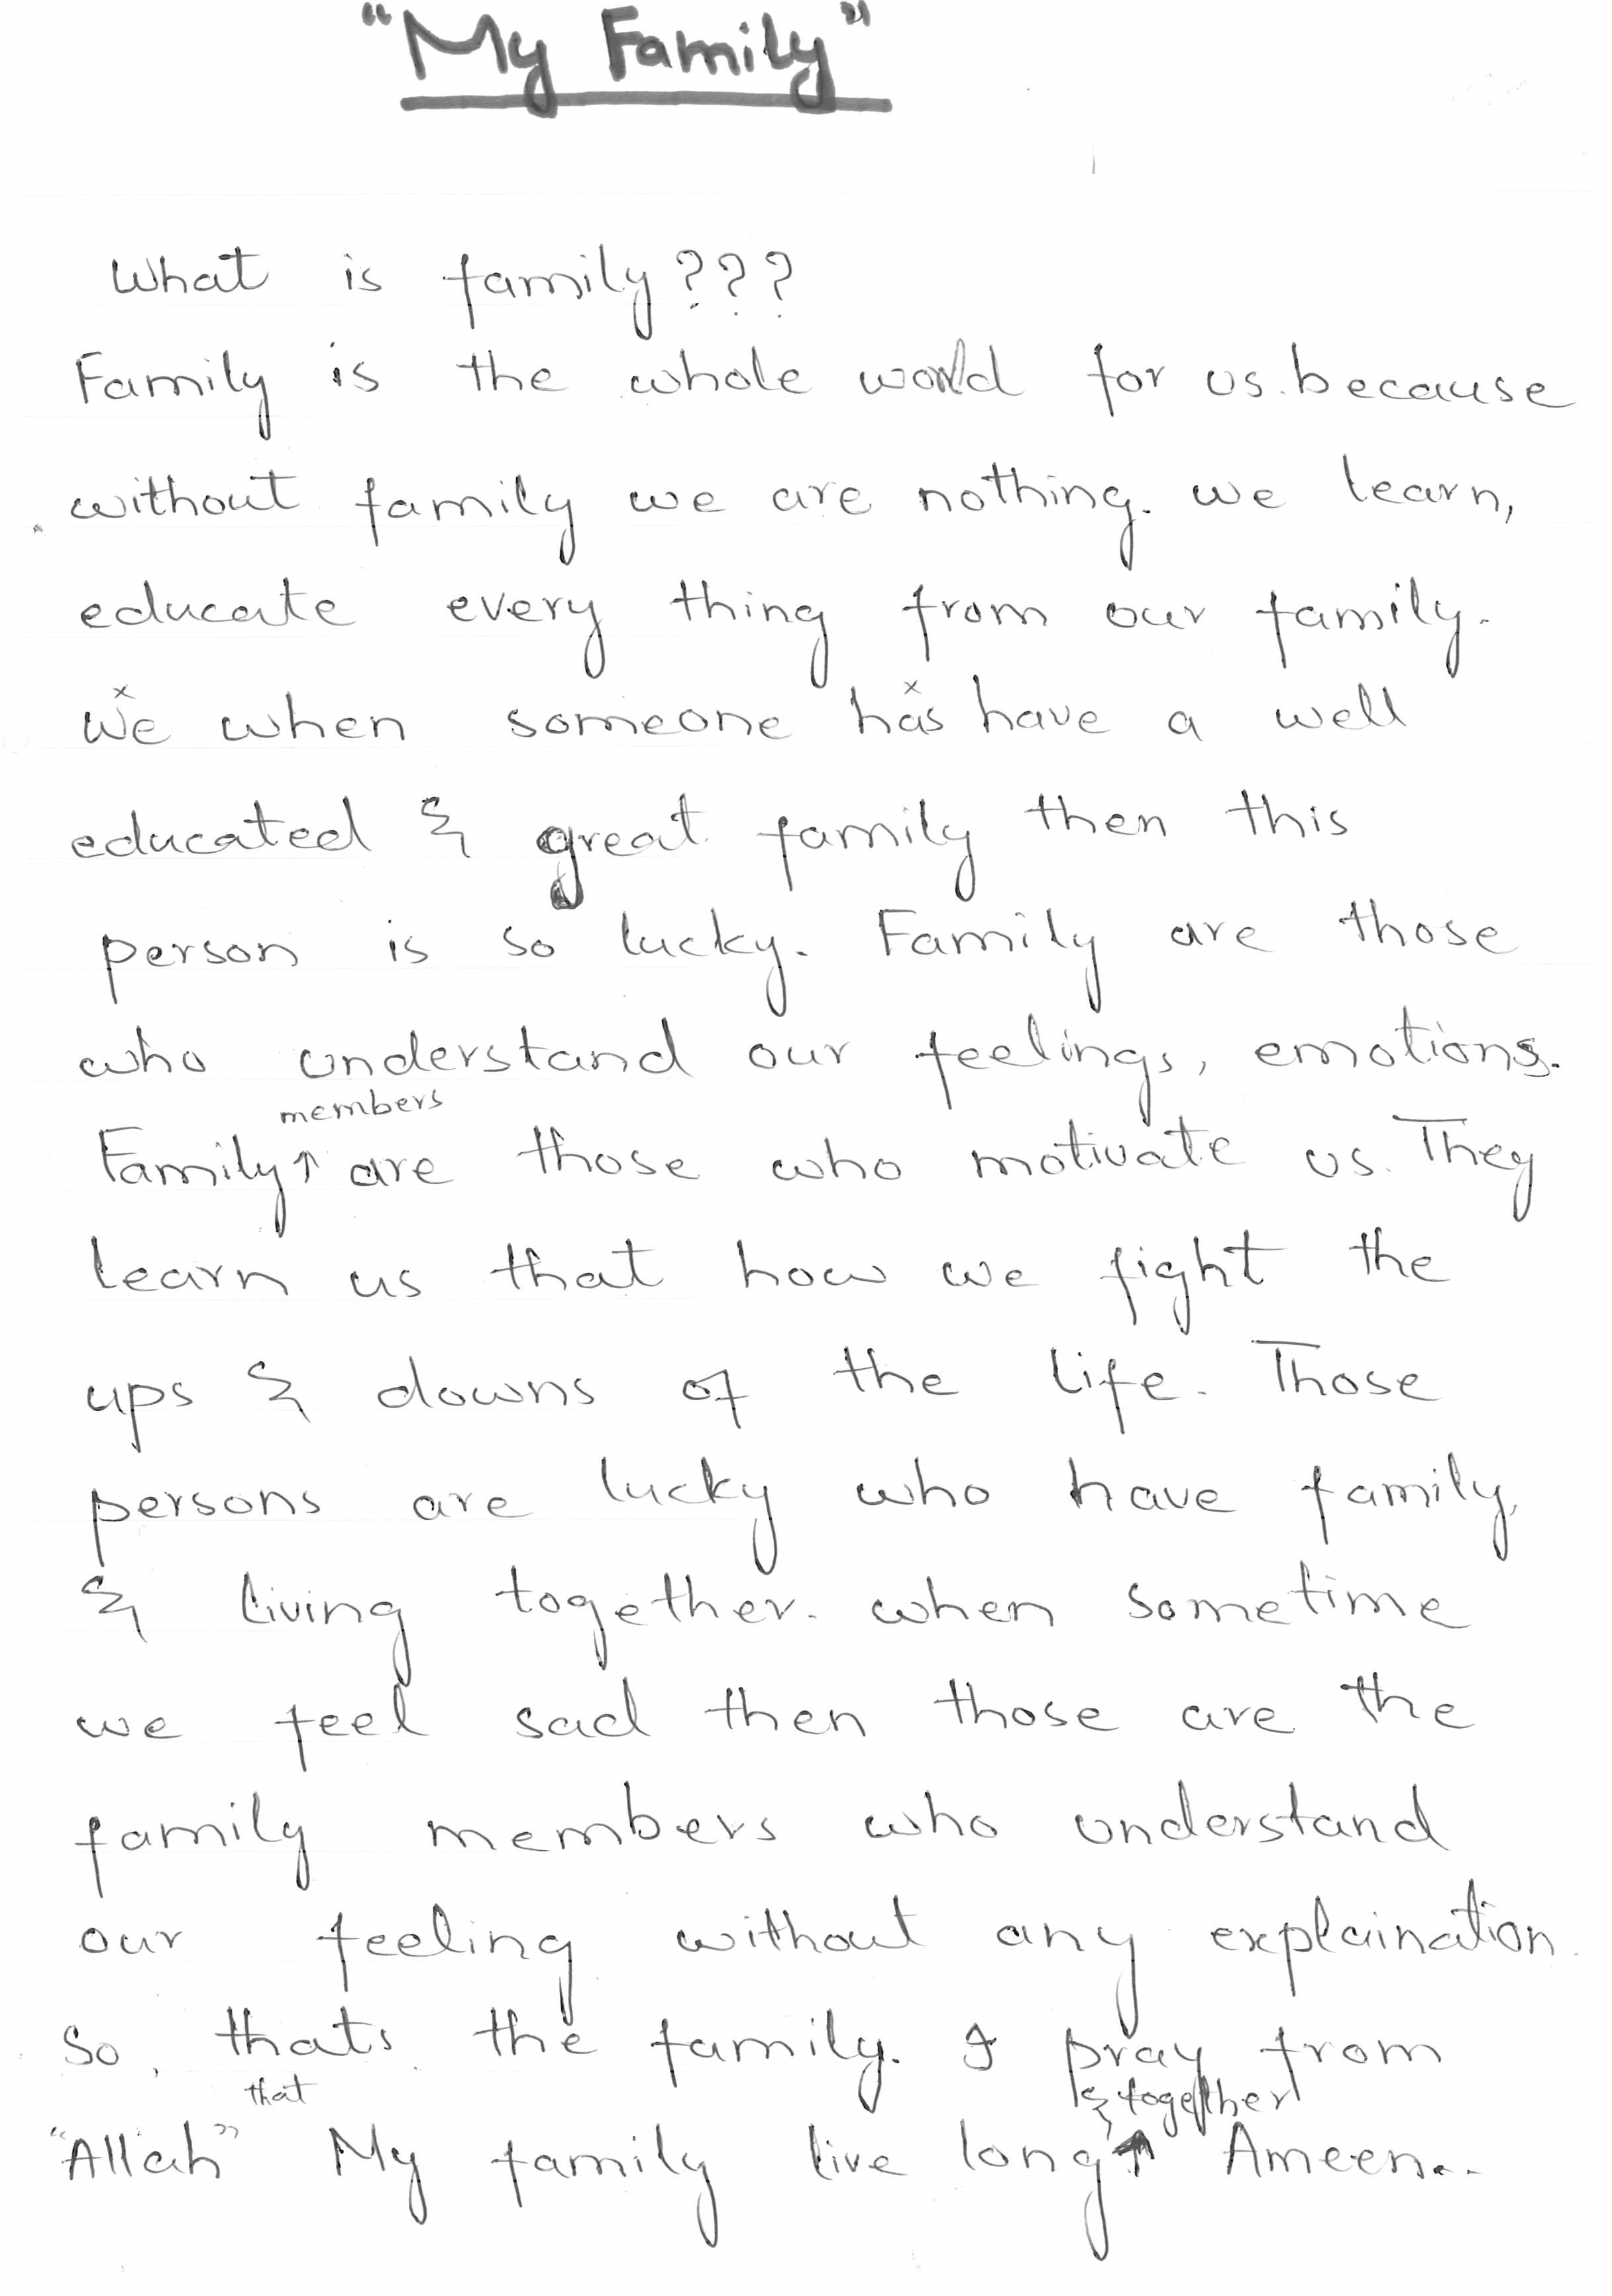 "My Family"
What is family???
Family is the whole world for us. because
without family we are nothing. we learn,
educate every thing from our family.
We when someone has have a well
educated & great family then this
person is so lucky. Family are those
who understand our feelings, emotions.
members
Family↑ are those who motivate us. They
learn us that how we fight the
ups & downs of the life. Those
persons are lucky who have family,
& living together. when sometime
we feel sad then those are the
family members who understand
our feeling without any explaination.
So, thats the family. I pray from
that & together
"Allah" My family live long↑ Ameen...